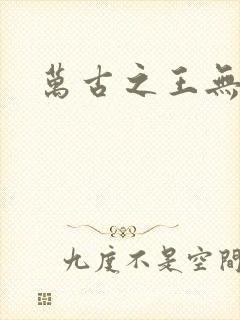 萬古之王無
九度不是空間